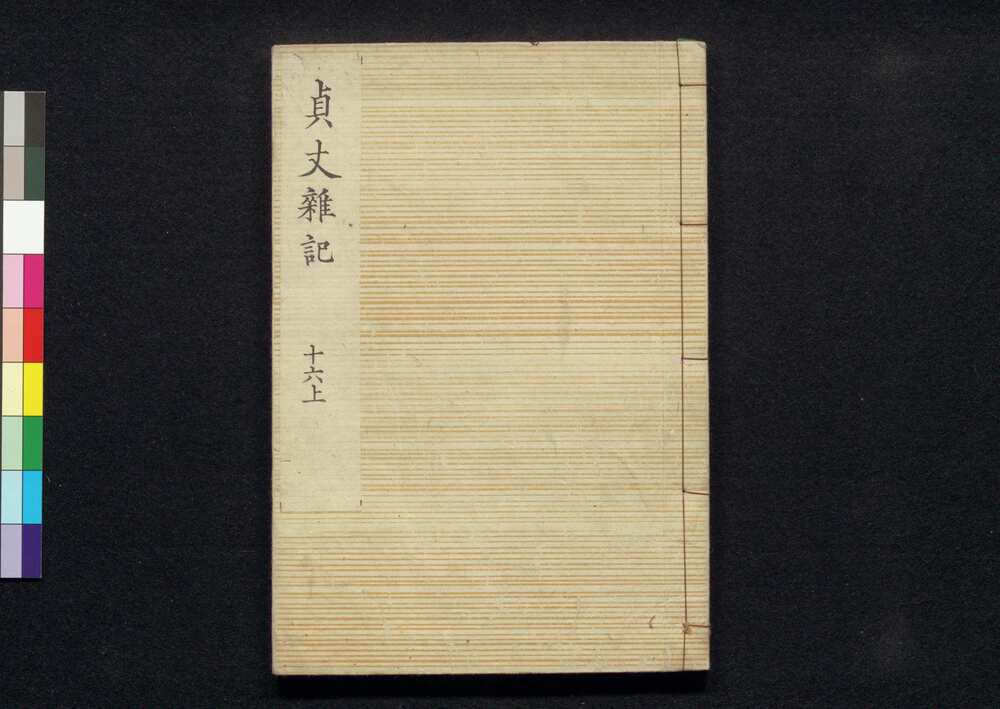 貞丈雜記
十六上